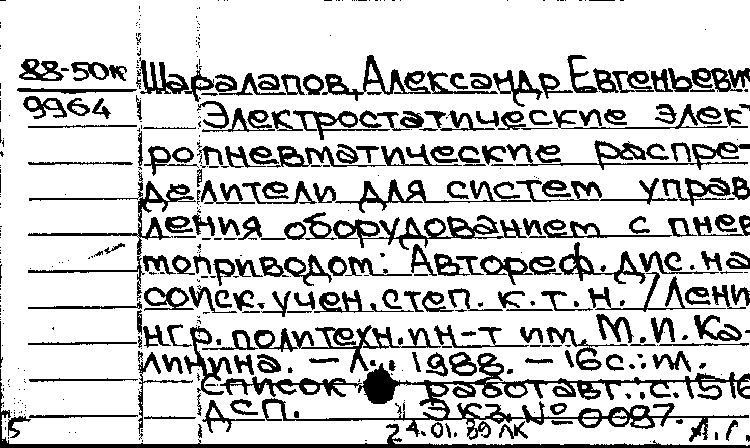 88-50к
9964
Шаралапов, Александр Евгеньеви
Электростатические элек
ропневматические распре-
делители для систем управ
ления оборудованием с пнев
моприводом: Автореф. дис. на
соиск. учен. степ. к. т. н. / Лени
нгр. политехн. ин-т им. М. И. Ка-
линина. - Л., 1988. - 16 с.: ил.
Список работ авт.: с. 1516
ДСП. Экз. № 0087.
5 24.01.89 ЛК А. Г.